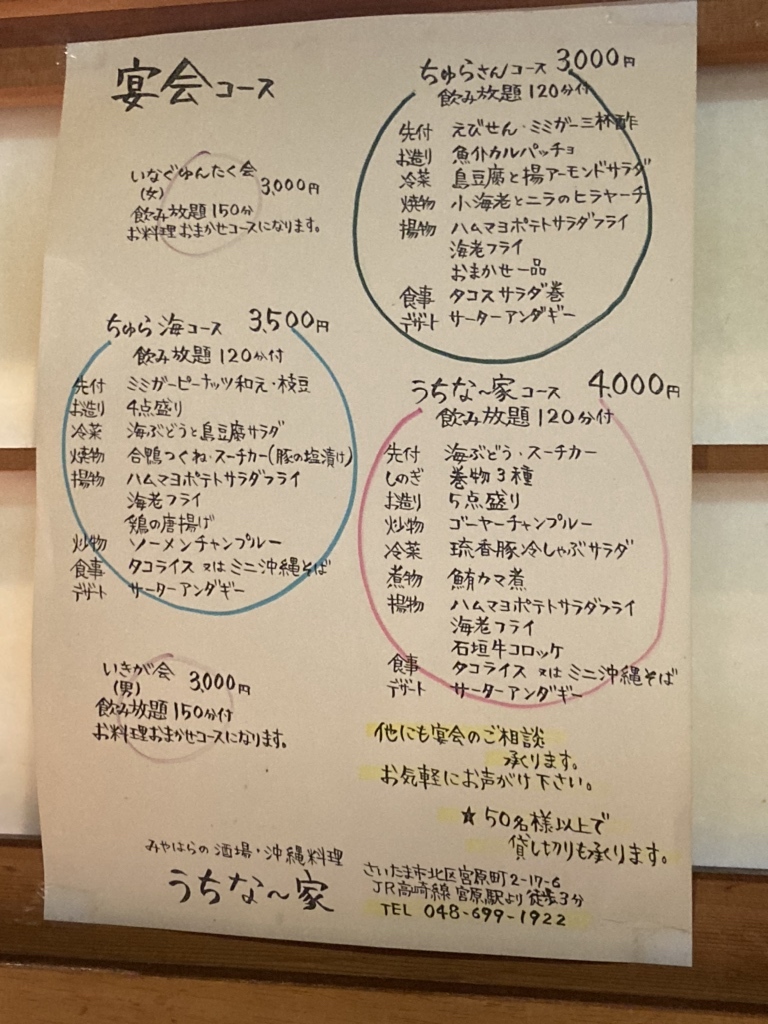 宴会コース
いなぐゆんたく会
(女)
3,000円
飲み放題150分
お料理おまかせコースになります。
ちゅら海コース 3,500円
飲み放題120分付
先付 ミミガーピーナッツ和え・枝豆
お造り 4点盛り
冷菜 海ぶどうと島豆腐サラダ
焼物 合鴨つくね・スーチカー(豚の塩漬け)
揚物 ハムマヨポテトサラダフライ
海老フライ
鶏の唐揚げ
炒物 ソーメンチャンプルー
食事 タコライス 又は ミニ沖縄そば
デザート サーターアンダギー
いきが会
(男)
3,000円
飲み放題150分付
お料理おまかせコースになります。
みやはらの酒場・沖縄料理
うちな〜家
ちゅらさんコース 3,000円
飲み放題120分付
先付 えびせん・ミミガー三杯酢
お造り 魚介カルパッチョ
冷菜 島豆腐と揚アーモンドサラダ
焼物 小海老とニラのヒラヤーチ
揚物 ハムマヨポテトサラダフライ
海老フライ
おまかせ一品
食事 タコスサラダ巻
デザート サーターアンダギー
うちな〜家コース 4,000円
飲み放題120分付
先付 海ぶどう・スーチカー
しのぎ 巻物3種
お造り 5点盛り
炒物 ゴーヤーチャンプルー
冷菜 琉香豚冷しゃぶサラダ
煮物 鮪カマ煮
揚物 ハムマヨポテトサラダフライ
海老フライ
石垣牛コロッケ
食事 タコライス 又は ミニ沖縄そば
デザート サーターアンダギー
他にも宴会のご相談
承ります。
お気軽にお声がけ下さい。
★50名様以上で
貸し切りも承ります。
さいたま市北区宮原町2-17-6
JR高崎線 宮原駅より徒歩3分
TEL 048-699-1922